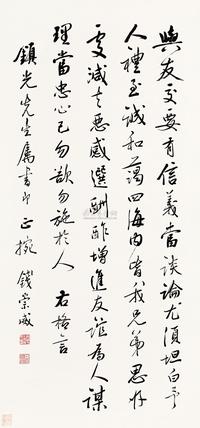 與友交要有信義當談論尤須坦白予
人禮至誠和藹四海內皆我兄弟思好
受減去惡感選酬酢增進友誼為人謀
理當忠心己勿欲勿施於人 右格言
鎮光先生屬書即 正捥 錢崇威